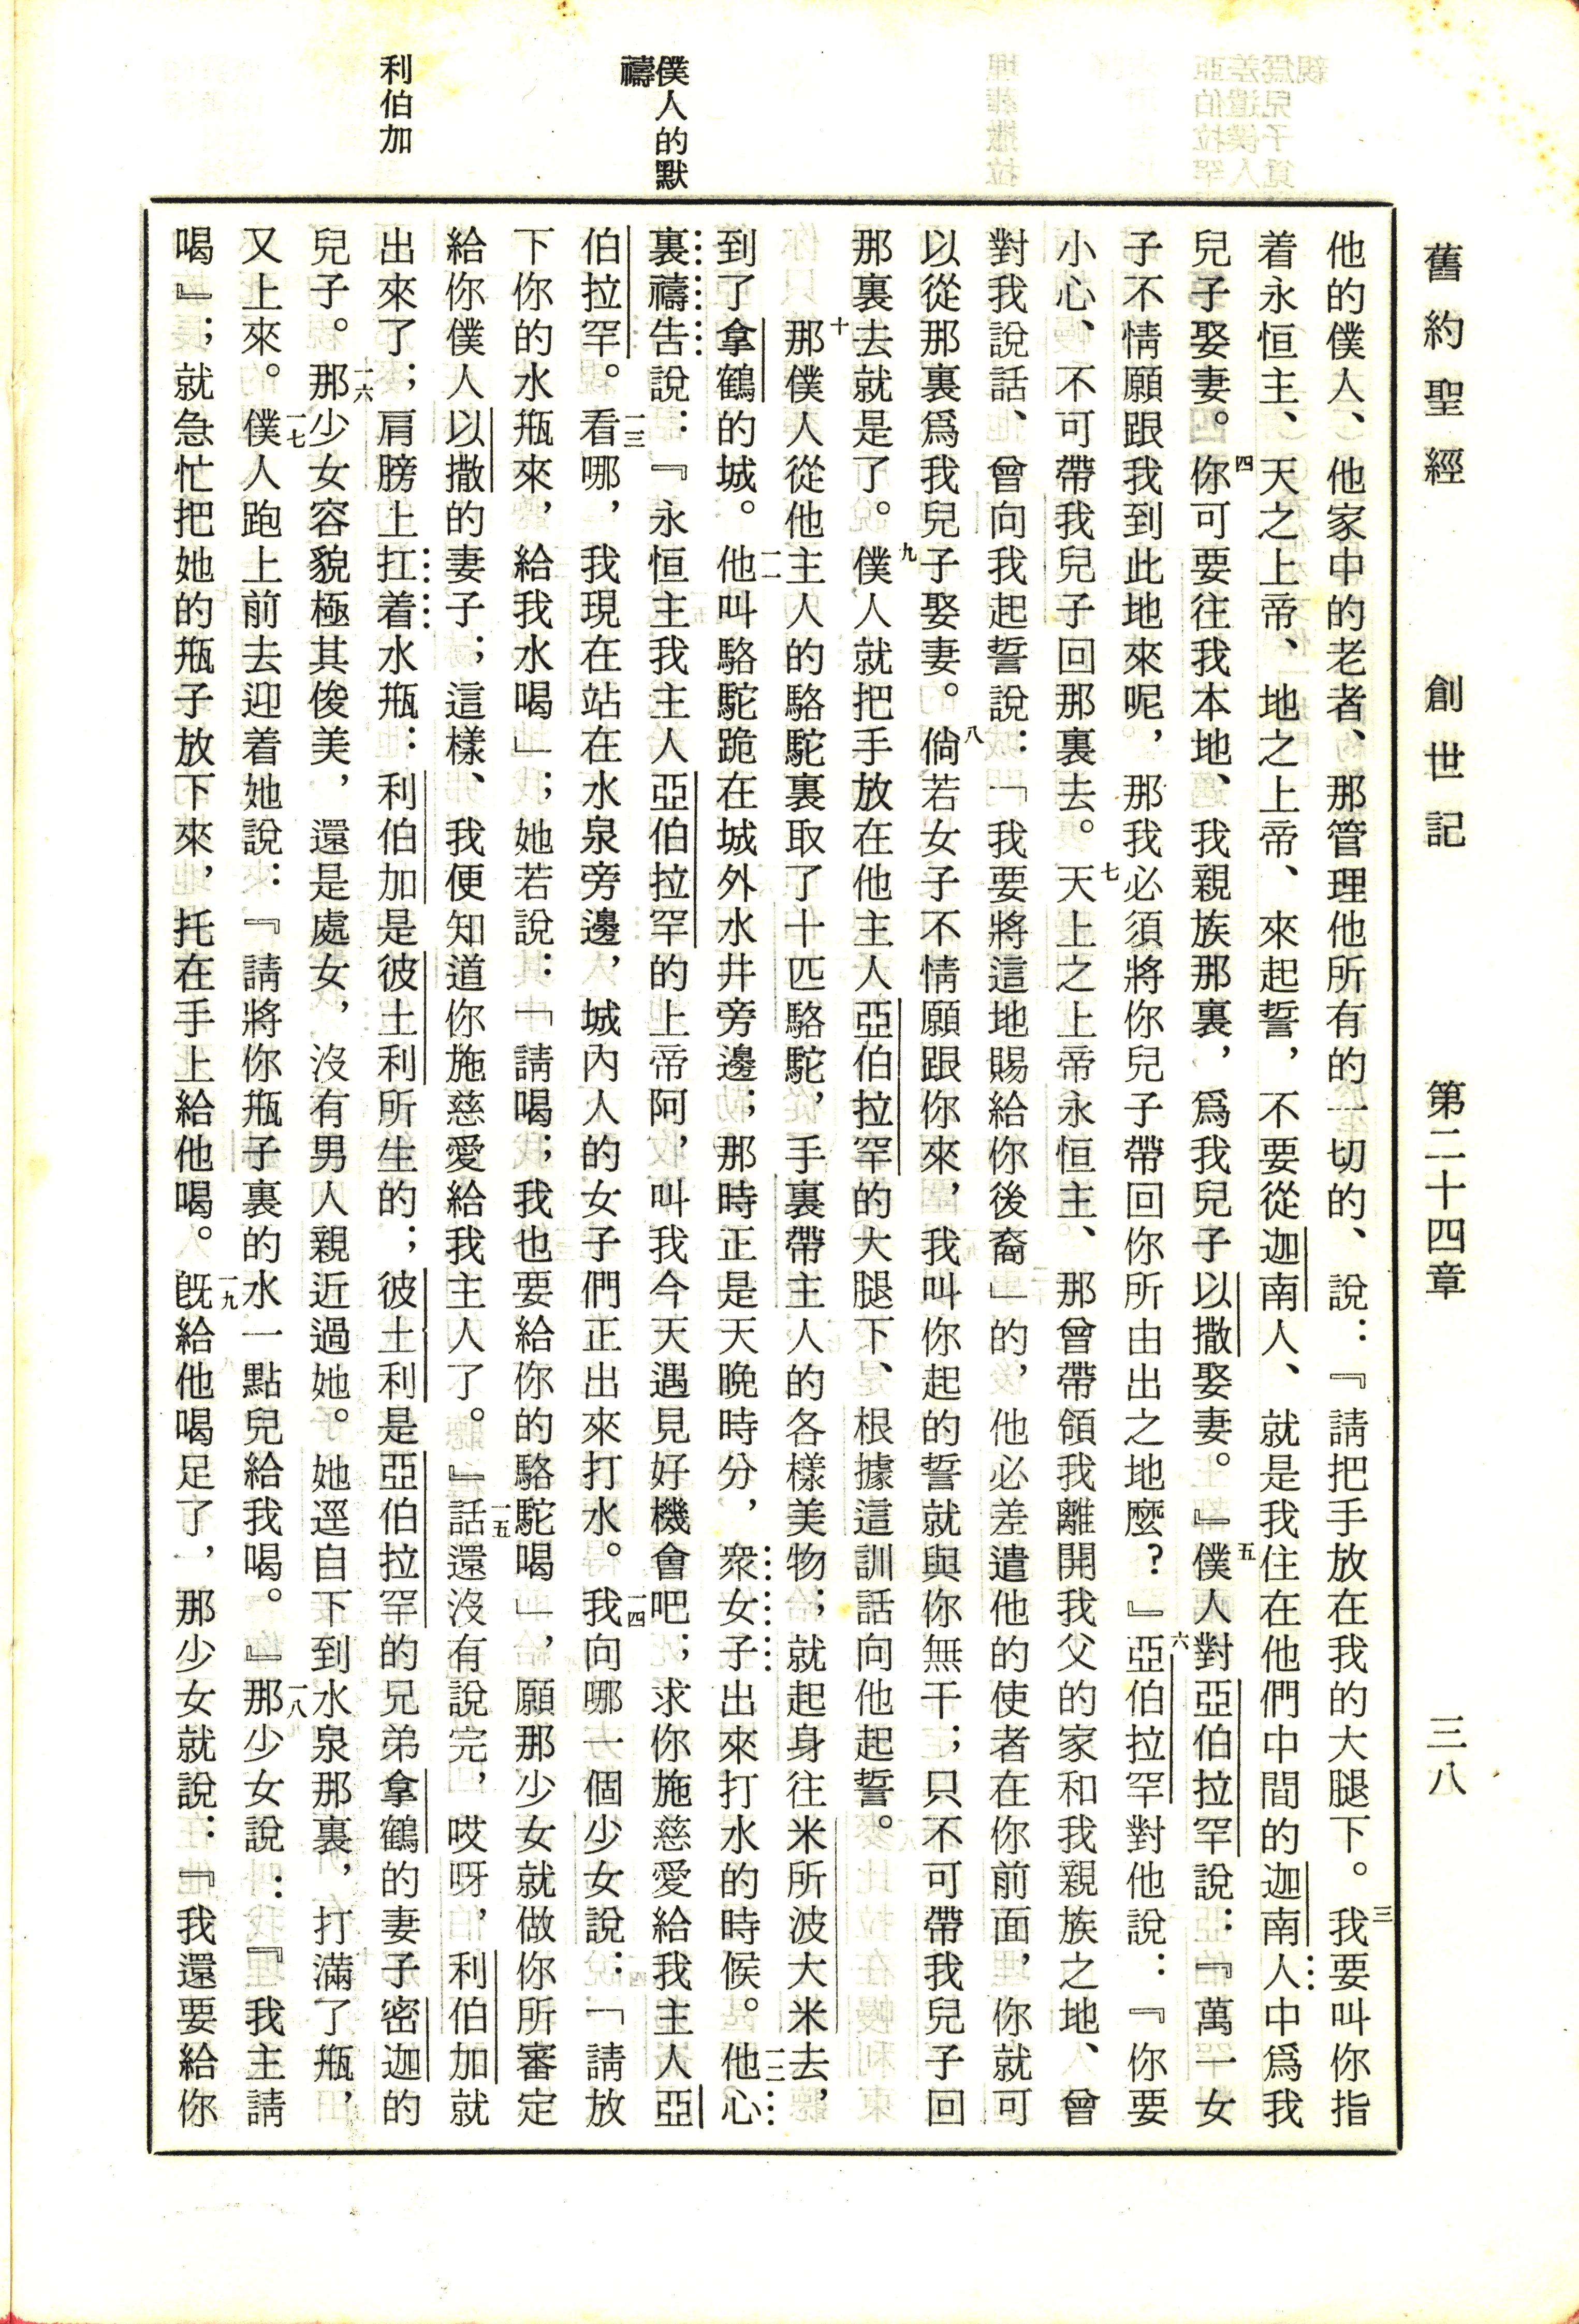 舊約聖經 創世記 第二十四章 三八
他的僕人、他家中的老者、那管理他所有的一切的、說：『請把手放在我的大腿下。三我要叫你指
着永恒主、天之上帝、地之上帝、來起誓，不要從迦南人、就是我住在他們中間的迦南人中爲我
兒子娶妻。四你可要往我本地、我親族那裏，爲我兒子以撒娶妻。』五僕人對亞伯拉罕說：『萬一女
子不情願跟我到此地來呢，那我必須將你兒子帶回你所由出之地麼？』六亞伯拉罕對他說：『你要
小心、不可帶我兒子回那裏去。七天上之上帝永恒主、那曾帶領我離開我父的家和我親族之地、曾
對我說話、曾向我起誓說：「我要將這地賜給你後裔」的，他必差遣他的使者在你前面，你就可
以從那裏爲我兒子娶妻。八倘若女子不情願跟你來，我叫你起的誓就與你無干；只不可帶我兒子回
那裏去就是了。九僕人就把手放在他主人亞伯拉罕的大腿下、根據這訓話向他起誓。
十那僕人從他主人的駱駝裏取了十匹駱駝，手裏帶主人的各樣美物；就起身往米所波大米去，
到了拿鶴的城。一一他叫駱駝跪在城外水井旁邊；那時正是天晚時分，衆女子出來打水的時候。一二他心
裏禱告說：『永恒主我主人亞伯拉罕的上帝阿，叫我今天遇見好機會吧；求你施慈愛給我主人亞
伯拉罕。一三看哪，我現在站在水泉旁邊，城內人的女子們正出來打水。一四我向哪一個少女說：「請放
下你的水瓶來，給我水喝」；她若說：「請喝；我也要給你的駱駝喝」，願那少女就做你所審定
給你僕人以撒的妻子；這樣、我便知道你施慈愛給我主人了。』一五話還沒有說完，哎呀，利伯加就
出來了；肩膀上扛着水瓶：利伯加是彼土利所生的；彼土利是亞伯拉罕的兄弟拿鶴的妻子密迦的
兒子。一六那少女容貌極其俊美，還是處女，沒有男人親近過她。她逕自下到水泉那裏，打滿了瓶，
又上來。一七僕人跑上前去迎着她說：『請將你瓶子裏的水一點兒給我喝。』一八那少女說：『我主請
喝』；就急忙把她的瓶子放下來，托在手上給他喝。一九旣給他喝足了，那少女就說：『我還要給你
僕人的默
禱
利伯加